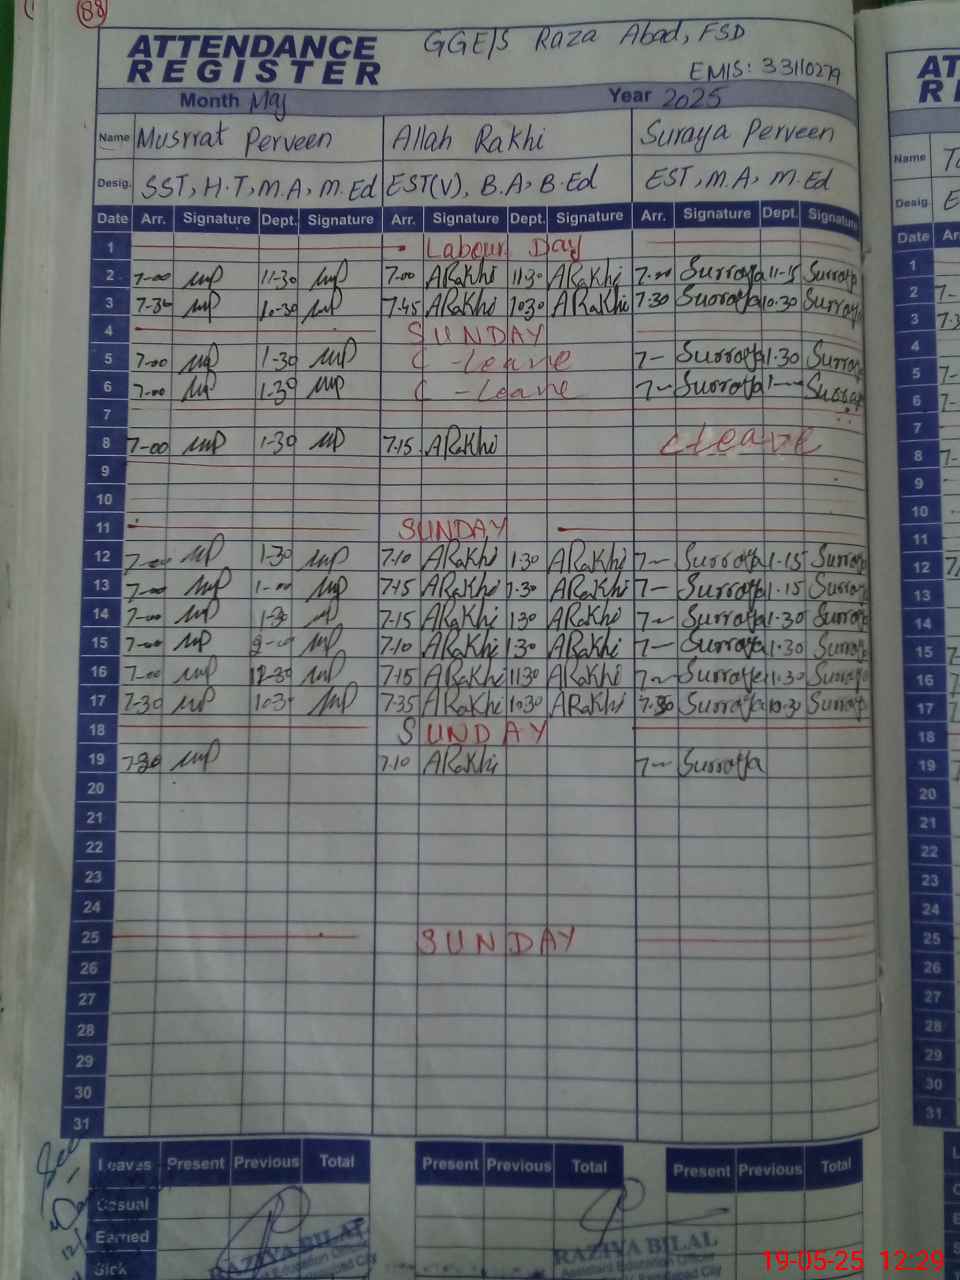 88
GGE/S Raza Abad, FSD
ATTENDANCE
REGISTER
EMIS: 33110279
Month May Year 2025
Name Musrrat Perveen Allah Rakhi Suraya Perveen
Desig. SST, H.T, M.A, M.Ed EST(V), B.A, B.Ed EST, M.A, M.Ed
Date Arr. Signature Dept. Signature Arr. Signature Dept. Signature Arr. Signature Dept. Signature
1 Labour Day
2 7-00 MP 11-30 MP 7.00 ARakhi 11.30 ARakhi 7-00 Surraya 11-15 Surraya
3 7-30 MP 10-30 MP 7.45 ARakhi 10.30 ARakhi 7.30 Surraya 10.30 Surraya
4 SUNDAY
5 7-00 MP 1-30 MP C-Leave 7- Surraya 1.30 Surraya
6 7-00 MP 1-30 MP C-Leave 7- Surraya 1- Surraya
7
8 7-00 MP 1-30 MP 7.15 ARakhi C Leave
9
10
11 SUNDAY
12 7-00 MP 1-30 MP 7.10 ARakhi 1.30 ARakhi 7- Surraya 1.15 Surraya
13 7-00 MP 1-00 MP 7.15 ARakhi 1.30 ARakhi 7- Surraya 1.15 Surraya
14 7-00 MP 1-30 MP 7.15 ARakhi 1.30 ARakhi 7- Surraya 1.30 Surraya
15 7-00 MP MP 7.10 ARakhi 1.30 ARakhi 7- Surraya 1.30 Surraya
16 7-00 MP 12-30 MP 7.15 ARakhi 11.30 ARakhi 7- Surraya 11.30 Surraya
17 7-30 MP 10-30 MP 7.35 ARakhi 10.30 ARakhi 7.30 Surraya 10.30 Surraya
18 SUNDAY
19 7-30 MP 7.10 ARakhi 7- Surraya
20
21
22
23
24
25 SUNDAY
26
27
28
29
30
31
Leaves Present Previous Total Present Previous Total Present Previous Total
Casual
Earned
Sick
RAZIYA BILAL
RAZIYA BILAL
Name
Desig.
Date
1
2
3
4
5
6
7
8
9
10
11
12
13
14
15
16
17
18
19
20
21
22
23
24
25
26
27
28
29
30
31
19-05-25 12:29